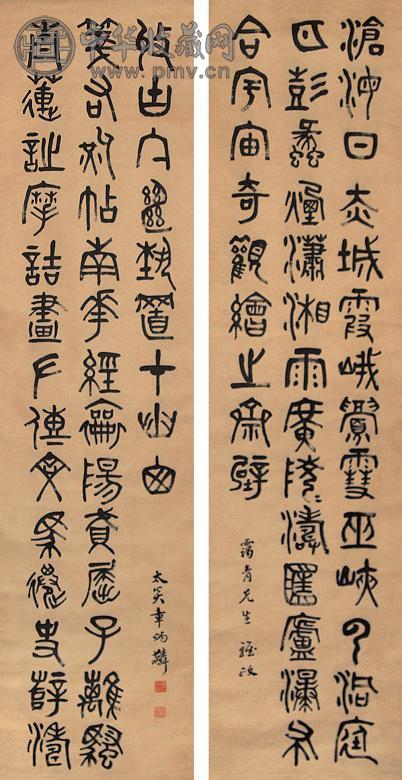 滄海日赤城霞峨眉雪巫峽云洞庭
月彭蠡煙瀟湘雨廣陵濤匡廬瀑布
合宇宙奇觀繪之齋壁
靄青先生雅政
青蓮詩摩詰畫左傳文馬遷史薛濤
箋右軍帖南華經陽賦屈子離騷
收古今絕藝置山囱
太炎章炳麟
中华收藏网
www.pmv.cn